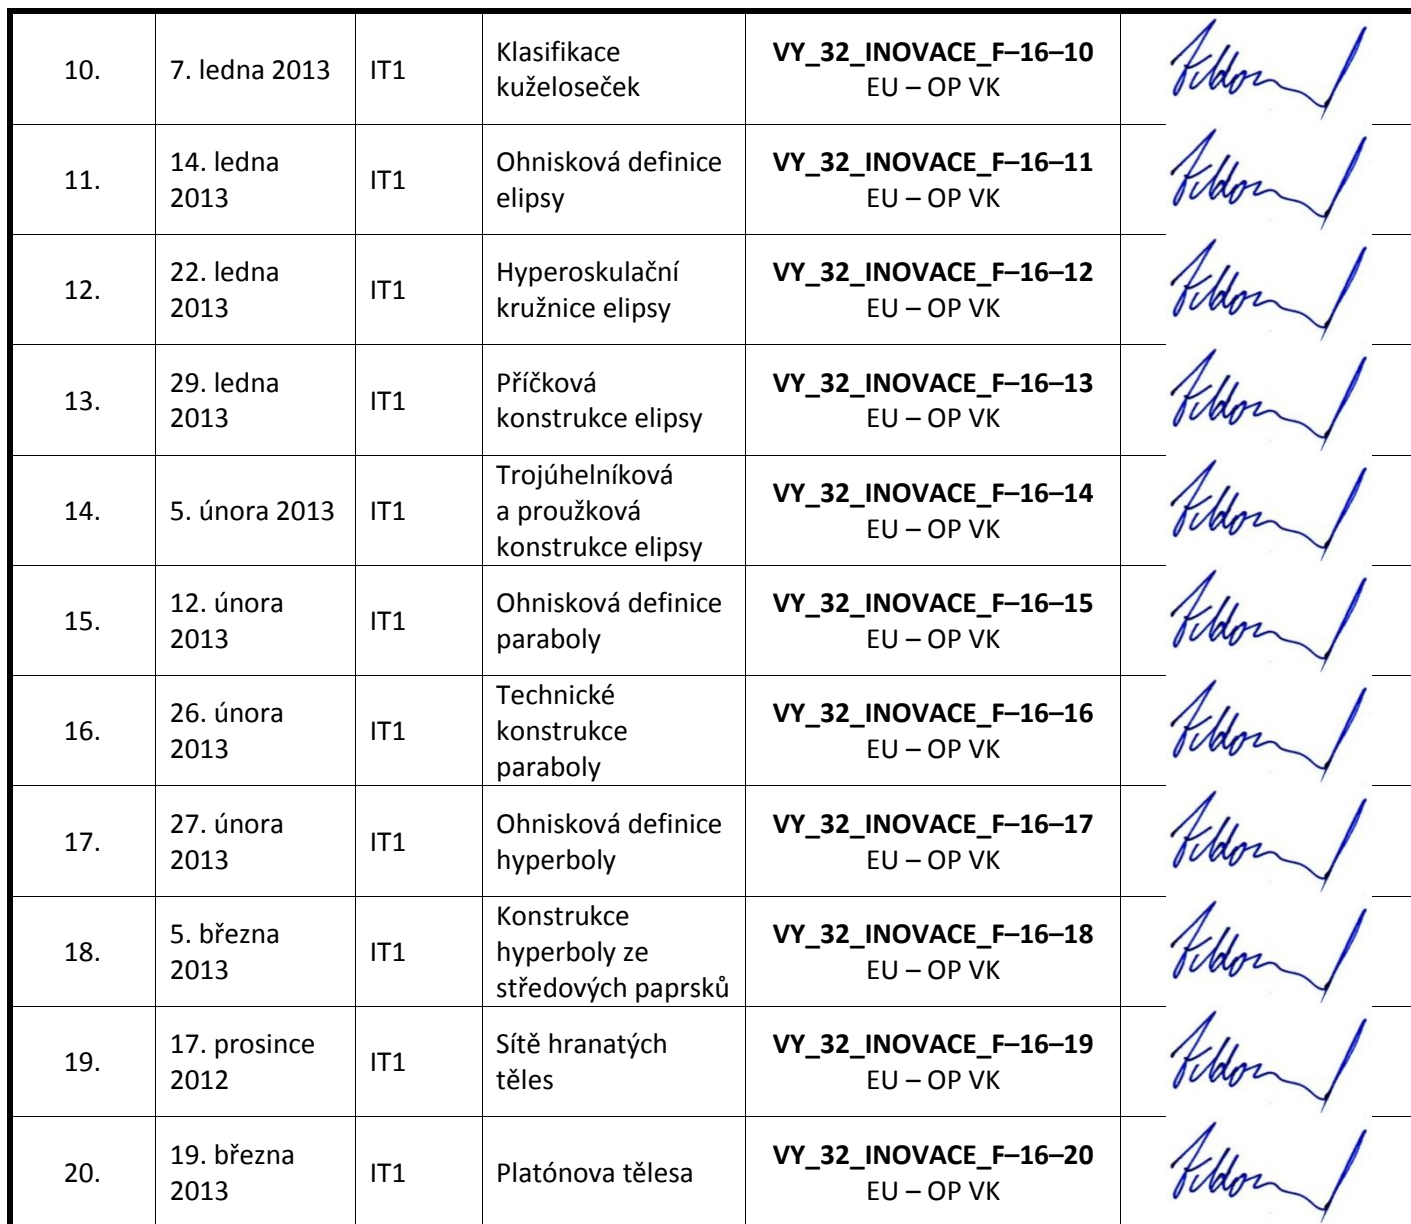 10.
7. ledna 2013
IT1
Klasifikace
kuželoseček
VY_32_INOVACE_F–16–10
EU – OP VK
11.
14. ledna
2013
IT1
Ohnisková definice
elipsy
VY_32_INOVACE_F–16–11
EU – OP VK
12.
22. ledna
2013
IT1
Hyperoskulační
kružnice elipsy
VY_32_INOVACE_F–16–12
EU – OP VK
13.
29. ledna
2013
IT1
Příčková
konstrukce elipsy
VY_32_INOVACE_F–16–13
EU – OP VK
14.
5. února 2013
IT1
Trojúhelníková
a proužková
konstrukce elipsy
VY_32_INOVACE_F–16–14
EU – OP VK
15.
12. února
2013
IT1
Ohnisková definice
paraboly
VY_32_INOVACE_F–16–15
EU – OP VK
16.
26. února
2013
IT1
Technické
konstrukce
paraboly
VY_32_INOVACE_F–16–16
EU – OP VK
17.
27. února
2013
IT1
Ohnisková definice
hyperboly
VY_32_INOVACE_F–16–17
EU – OP VK
18.
5. března
2013
IT1
Konstrukce
hyperboly ze
středových paprsků
VY_32_INOVACE_F–16–18
EU – OP VK
19.
17. prosince
2012
IT1
Sítě hranatých
těles
VY_32_INOVACE_F–16–19
EU – OP VK
20.
19. března
2013
IT1
Platónova tělesa
VY_32_INOVACE_F–16–20
EU – OP VK